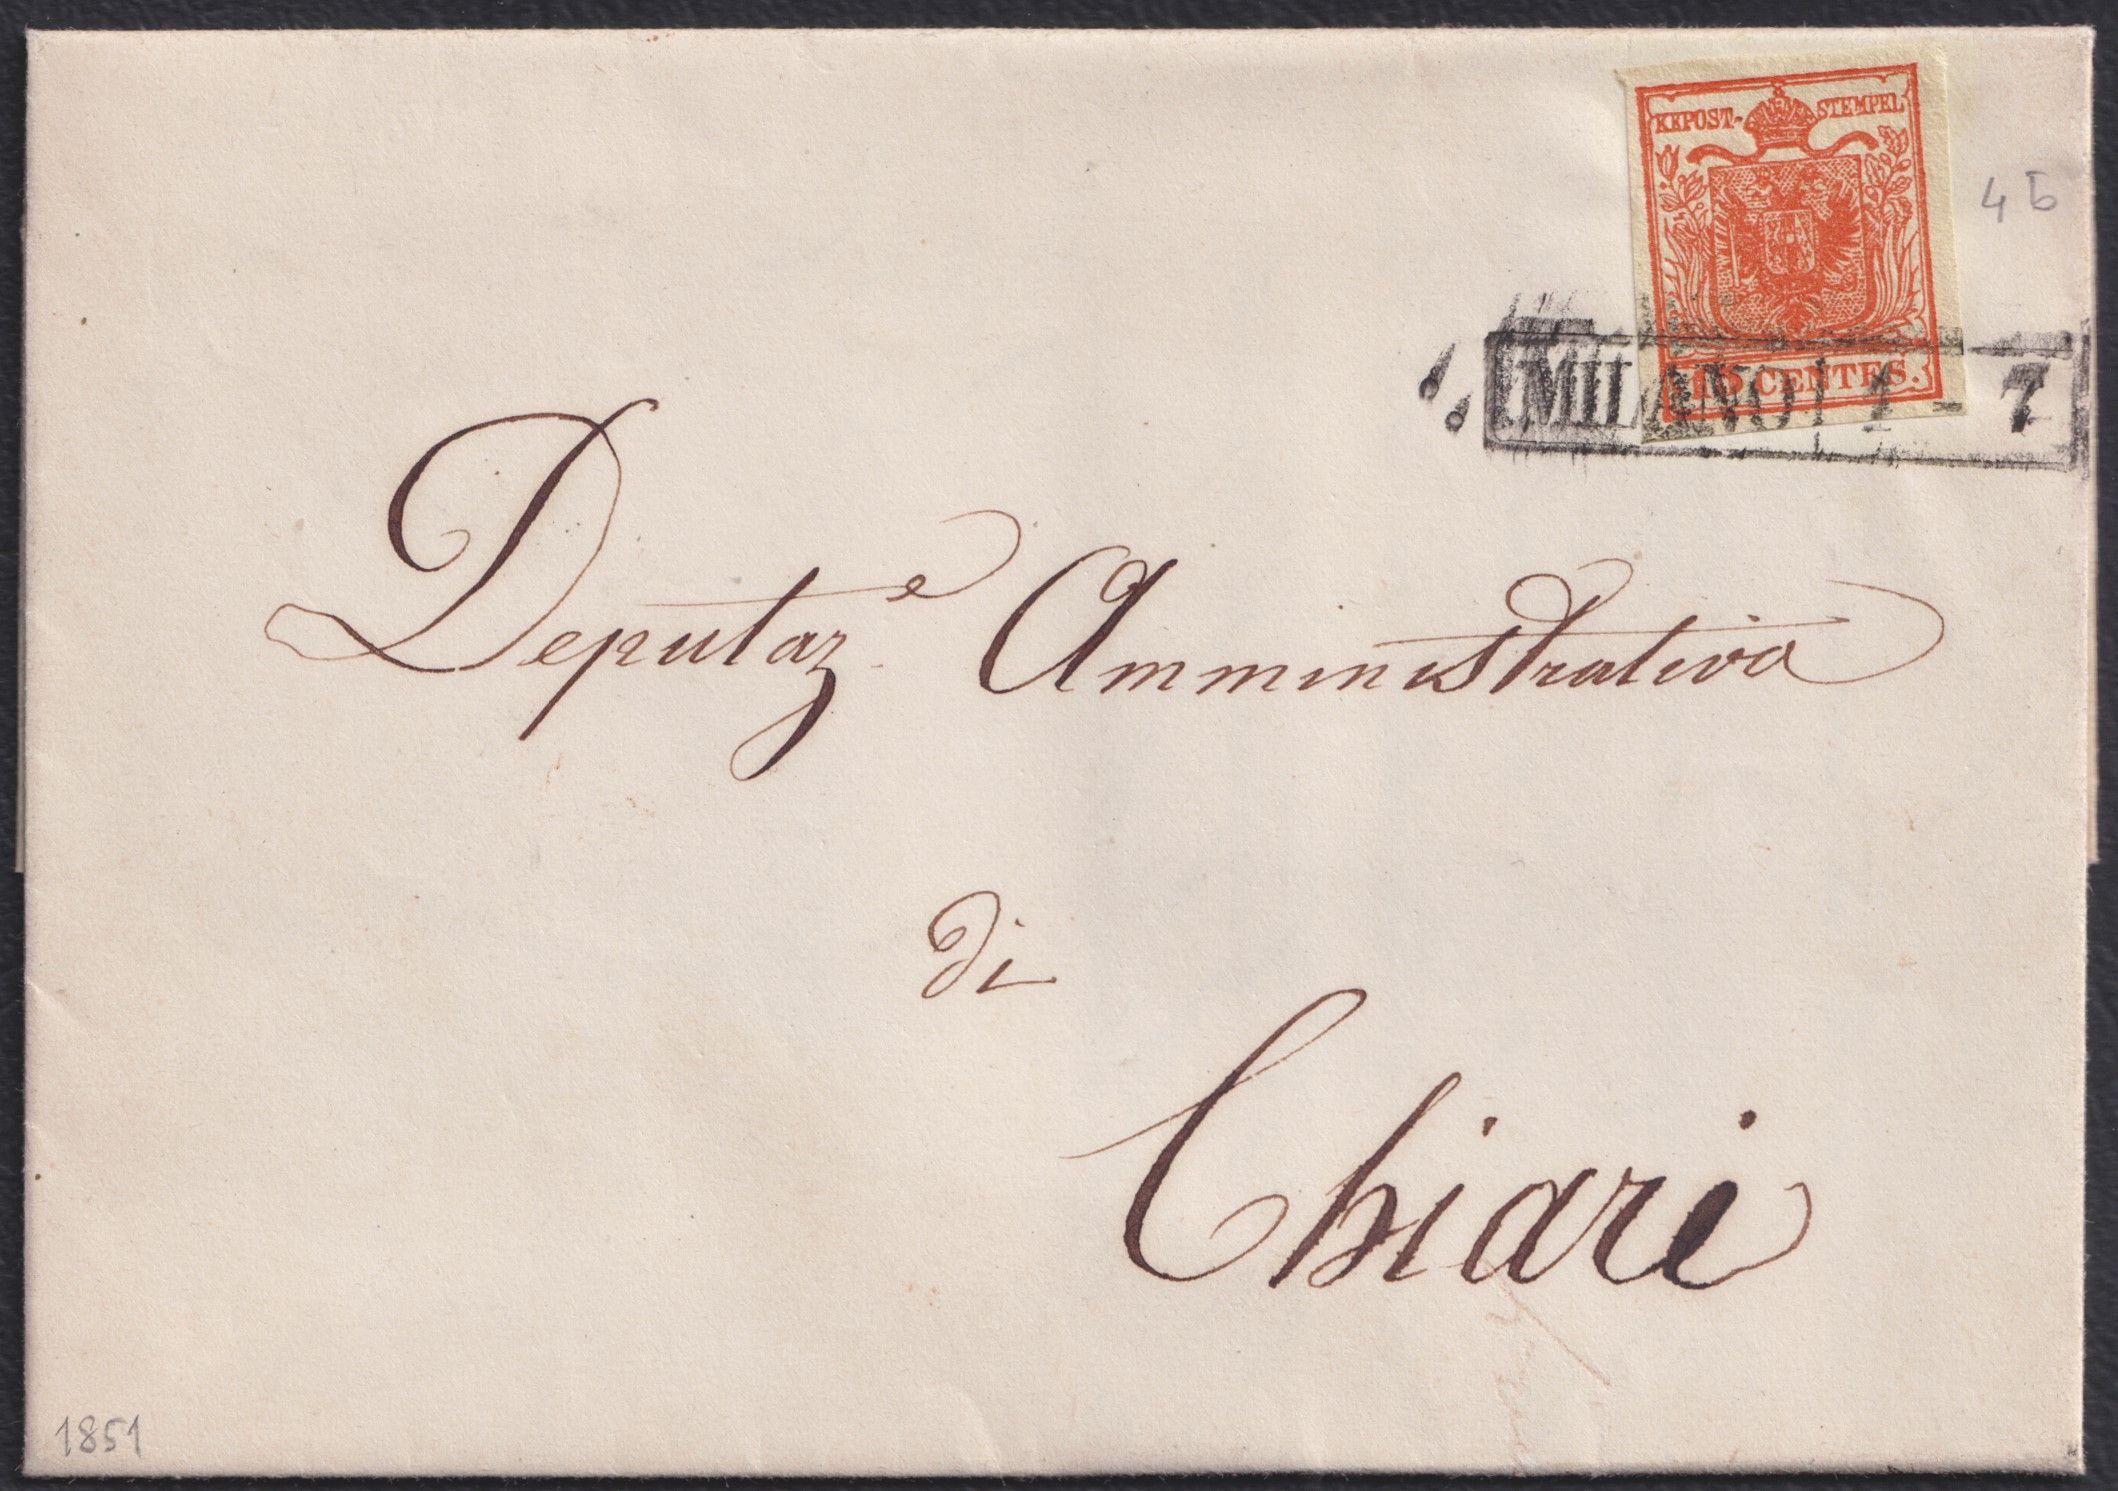 KKPOST-STEMPEL
15 CENTES.
4 b
MILANO 1 - 7
Deputaz.e Amministrativa
di
Chiari
1851